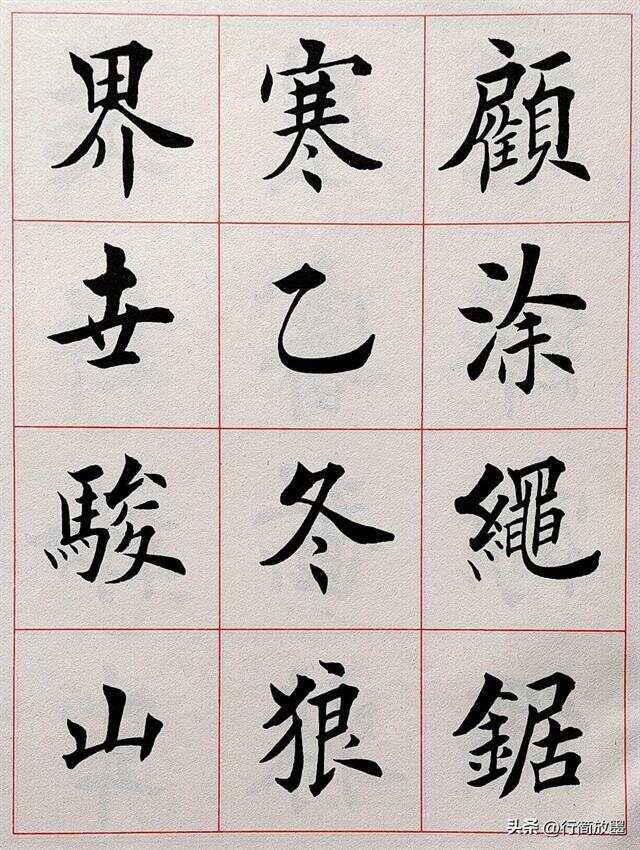 顧涂繩鋸
寒乙冬狼
界卋駿山
头条 @行简放墨